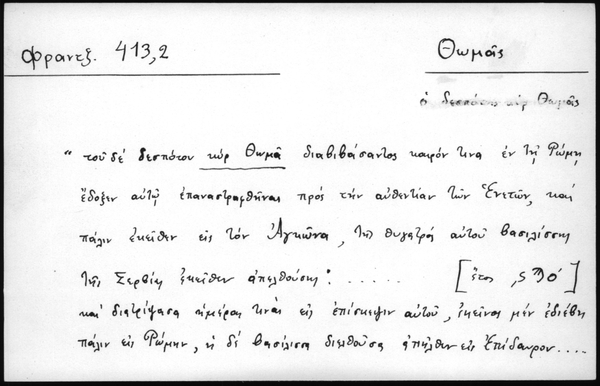 Φραντζ. 413,2
Θωμᾶς
ὁ δεσπότης κὺρ Θωμᾶς
"τοῦ δέ δεσπότου κύρ Θωμᾶ διαβιβάσαντος καιρόν τινα ἐν τῇ Ῥώμῃ
ἔδοξεν αὐτῷ ἐπαναστραφῆναι πρός τήν αὐθεντίαν τῶν Ἑνετῶν, καί
πάλιν ἐκεῖθεν εἰς τόν Ἀγκῶνα, τῆς θυγατρός αὐτοῦ βασιλίσσης
τῆς Σερβίας ἐκεῖθεν ἀπελθούσης· ...... [ἔτος ,ϛϠό]
καί διατρίψασα ἡμέρας τινάς εἰς ἐπίσκεψιν αὐτοῦ, ἐκεῖνος μέν ἐδιέβη
πάλιν εἰς Ῥώμην, ἡ δέ βασίλισσα διελθοῦσα ἀπῆλθεν εἰς Ἐπίδαυρον....